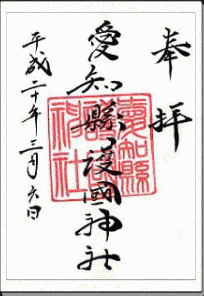 奉拝
愛知縣護國神社
愛知縣護國神社
平成二十年三月六日